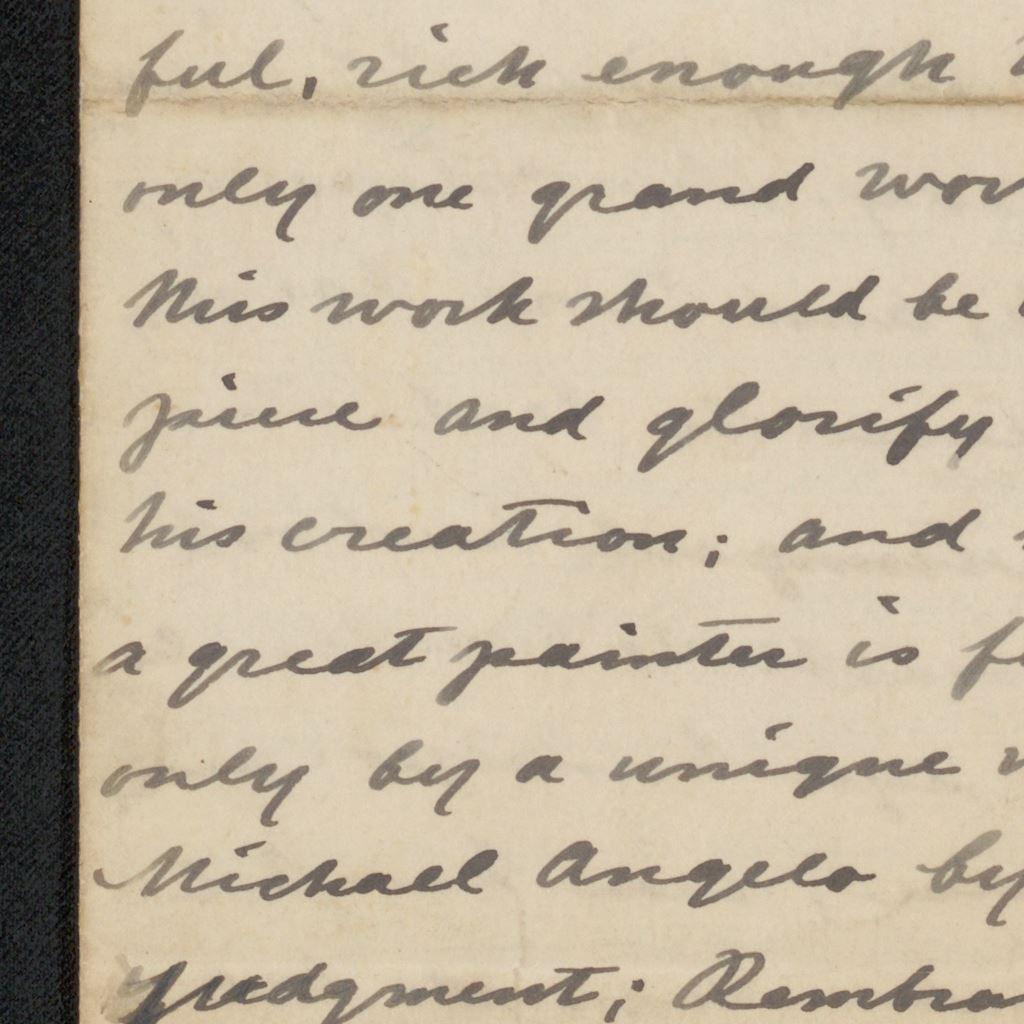 ful, rich enough
only one grand
This work should be
piece and glorify
his creation; and
a great painter is
only by a unique
Michael Angelo by
Judgment;